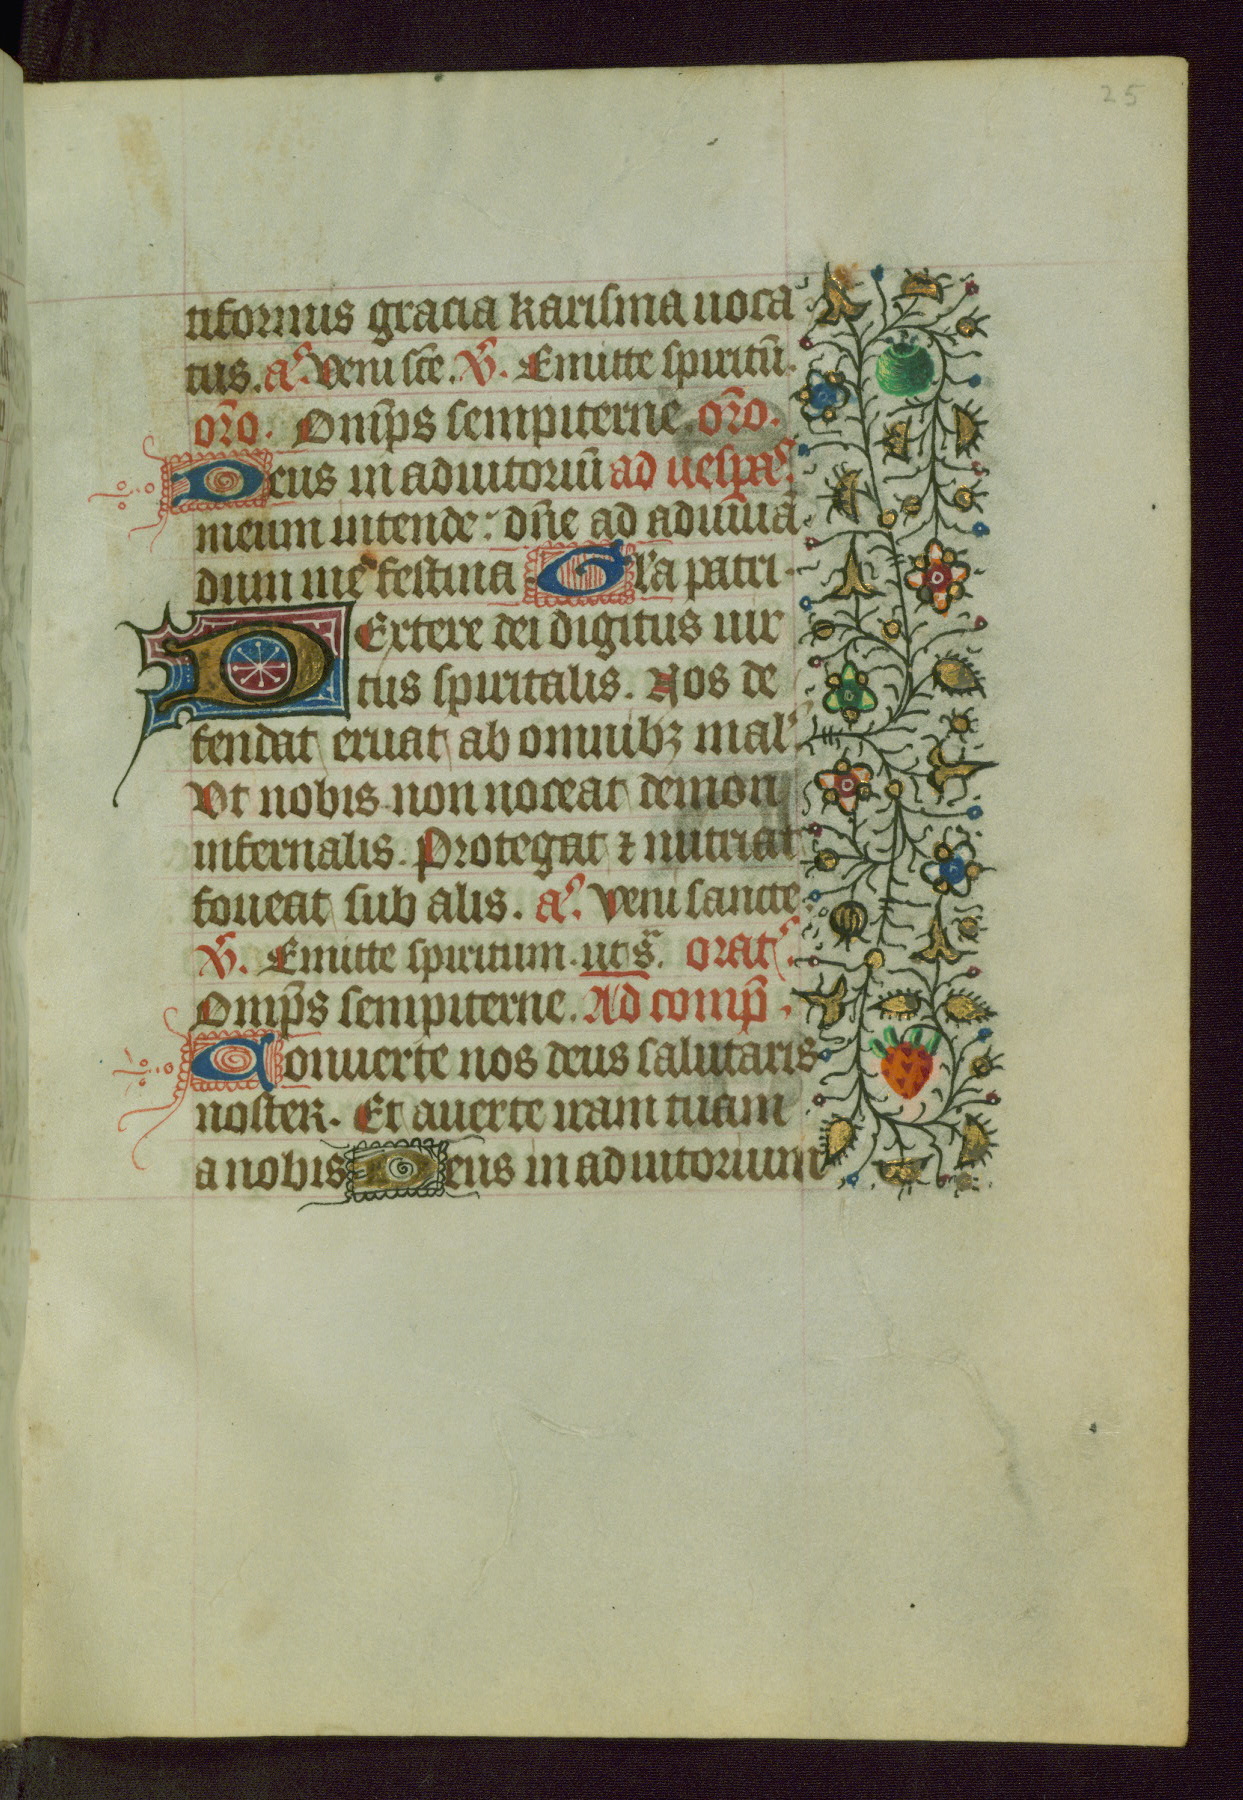 25
tiformis gracia karisma uoca
tus. a᷒. Veni sc̃e. V᷒. Emitte spiritũ.
or̃o. Omp̃s sempiterne. or̃o.
Deus in adiutoriũ ad uesp̃as᷒.
meum intende: dñe ad adiuuã
dum me festina Gl'a patri.
DExtere dei digitus uir
tus spiritalis. Nos de
fendat eruat ab omnibꝫ mal᷒.
Vt nobis non noceat demon
infernalis. Protegat ⁊ nutriat
foueat sub alis. a᷒. Veni sancte.
V᷒. Emitte spiritum. ut sᷓ. orat᷒.
Omp̃s sempiterne. Ad comp̃.
Conuerte nos deus salutaris
noster. Et auerte iram tuam
a nobis Deus in adiutorium